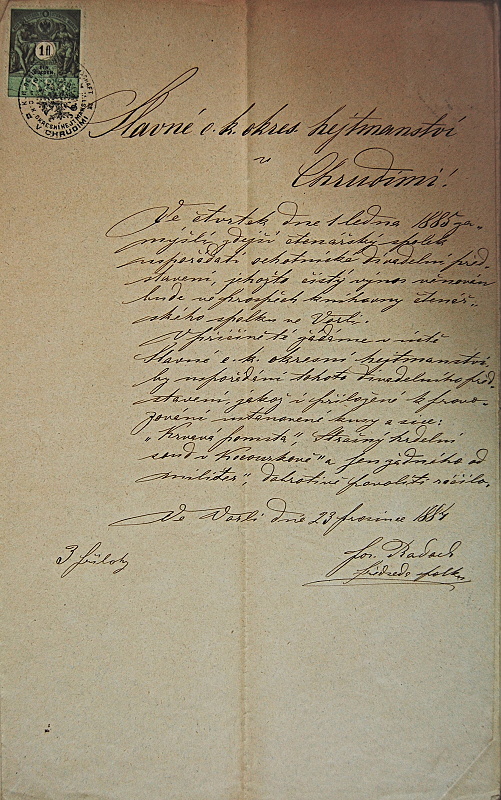 10
V CHRUDIMI
Slavné c. k. okres. hejtmanství
v
Chrudimi!
Ve čtvrtek dne 1 ledna 1885 za-
mýšlí zdejší čtenářský spolek
uspořádati ochotnické divadelní před-
stavení, jehožto čistý výnos věnován
bude ve prospěch knihovny čtenář-
ského spolku ve
V příčině té žádáme v úctě
Slavné c. k. okresní hejtmanství,
by uspořádání tohoto divadelního před-
stavení jakož i přiložené k provo-
zování ustanovené kusy a sice:
„Krvavá pomsta", Strašný hrdelní
soud v Kocourkově" a jen žádného od
militer", dobrotivě povoliti ráčilo.
Ve dne 23 prosince 1884
3 přílohy
Jos.
předseda spolku